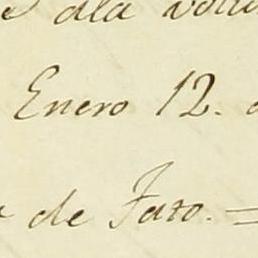 dla
Enero 12.
de Fato. =